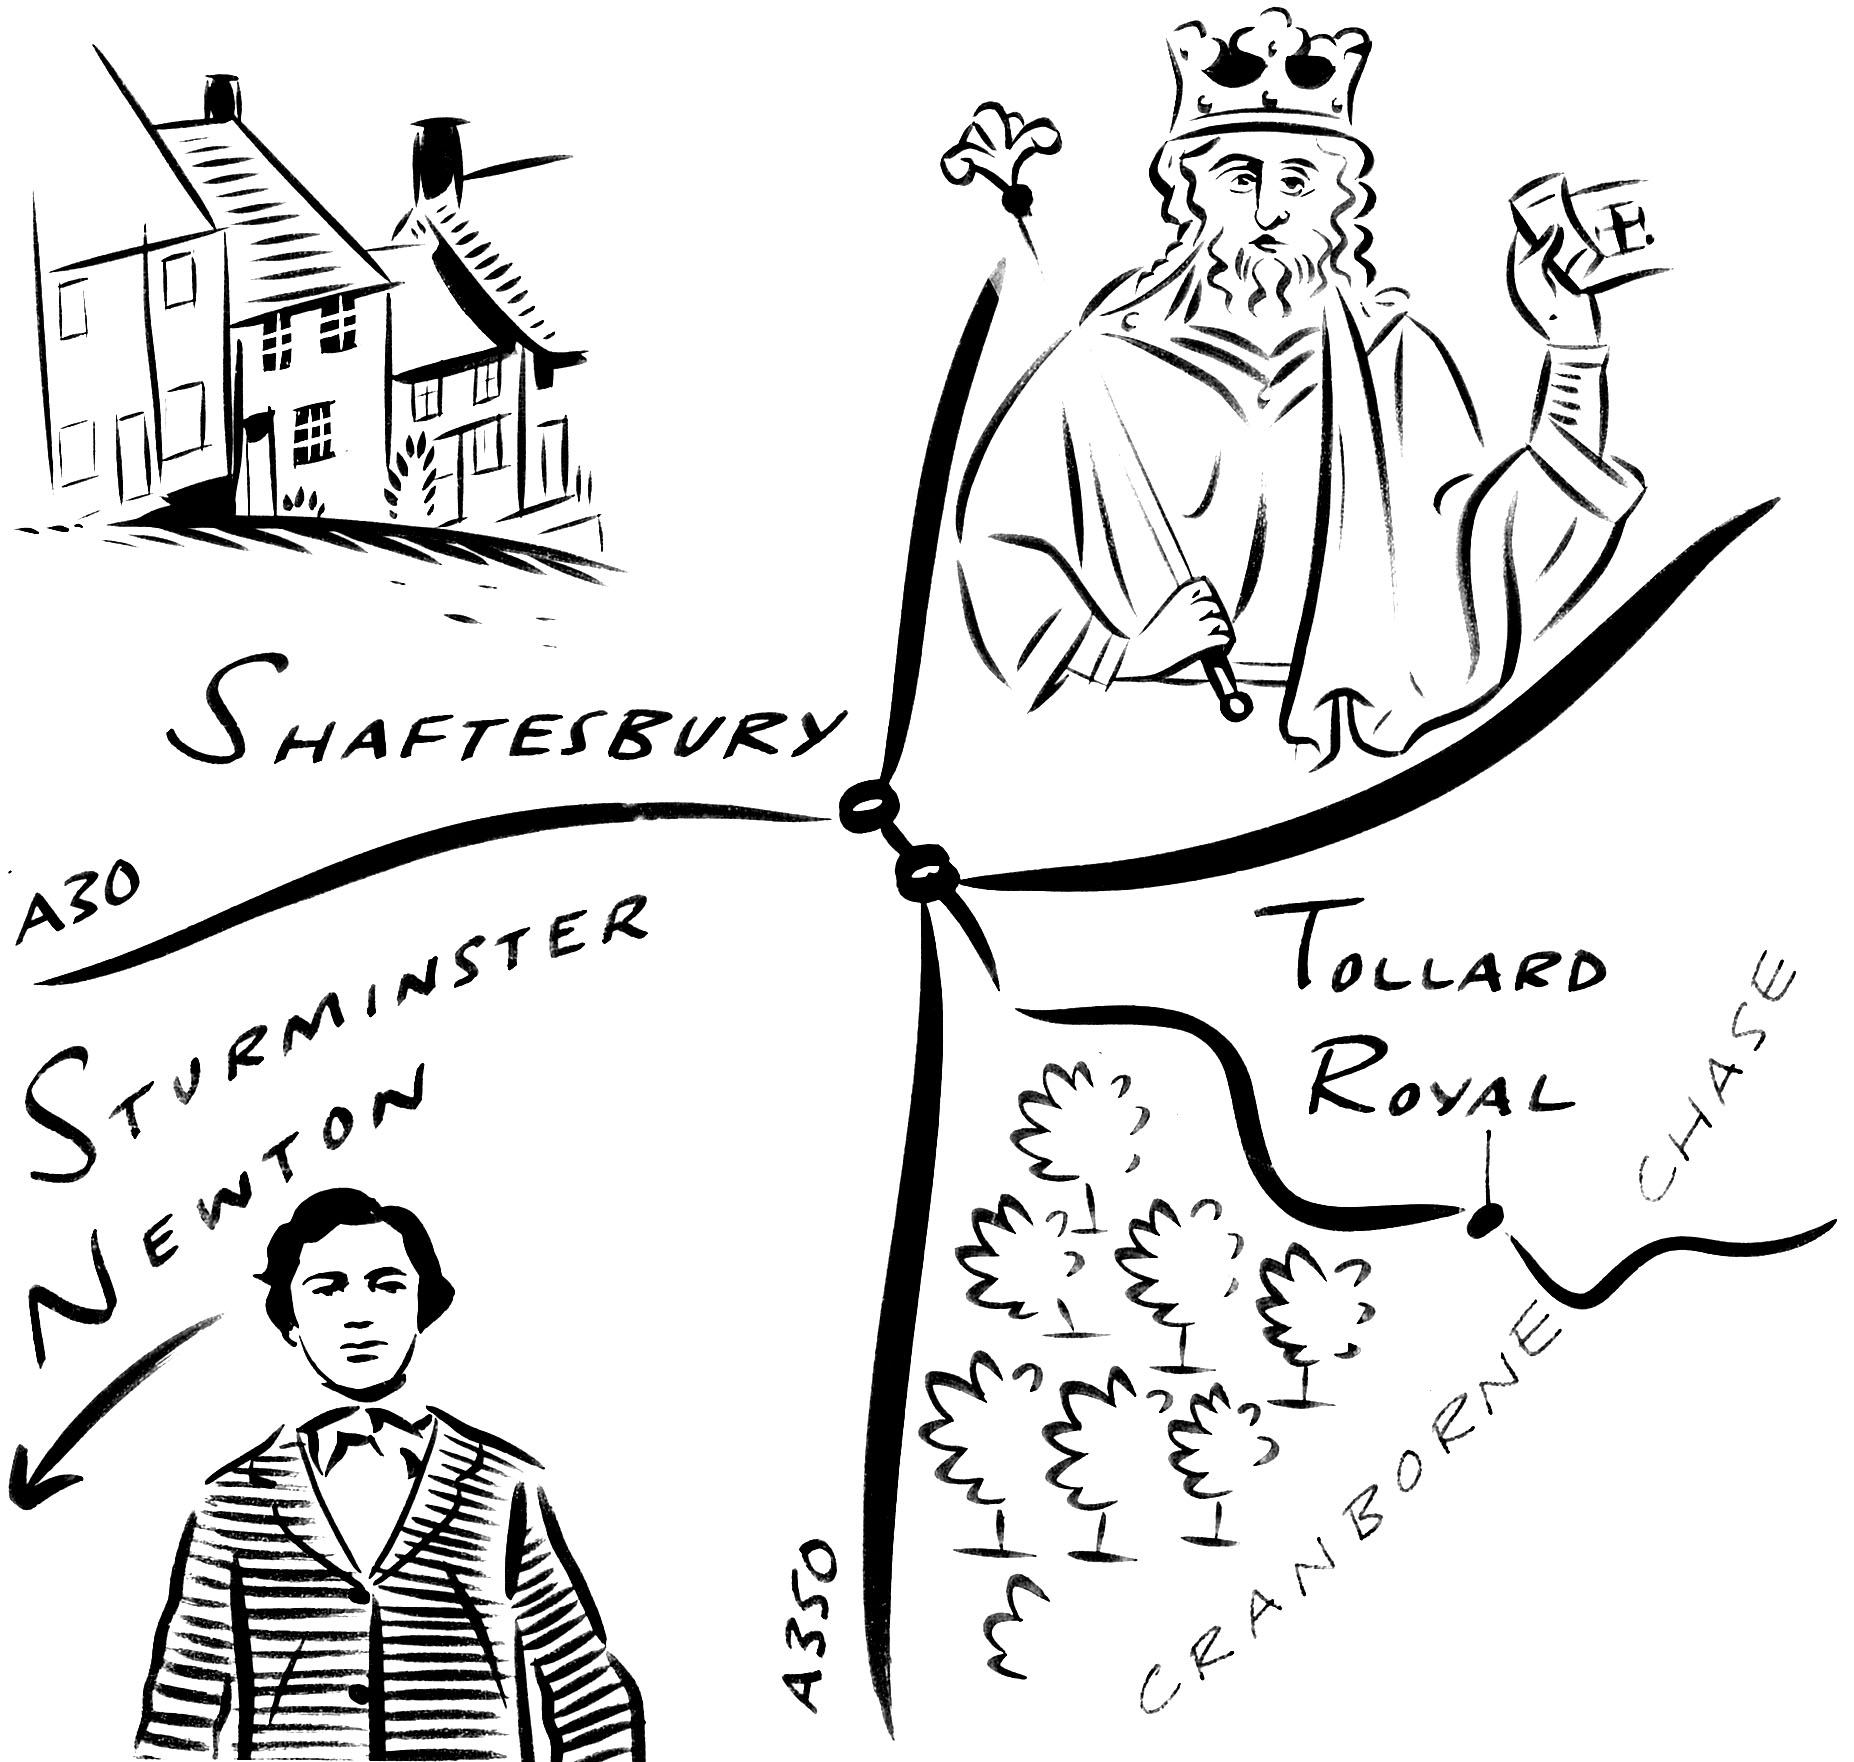 E.
SHAFTESBURY
A30
STURMINSTER
NEWTON
TOLLARD
ROYAL
CRANBORNE CHASE
A350